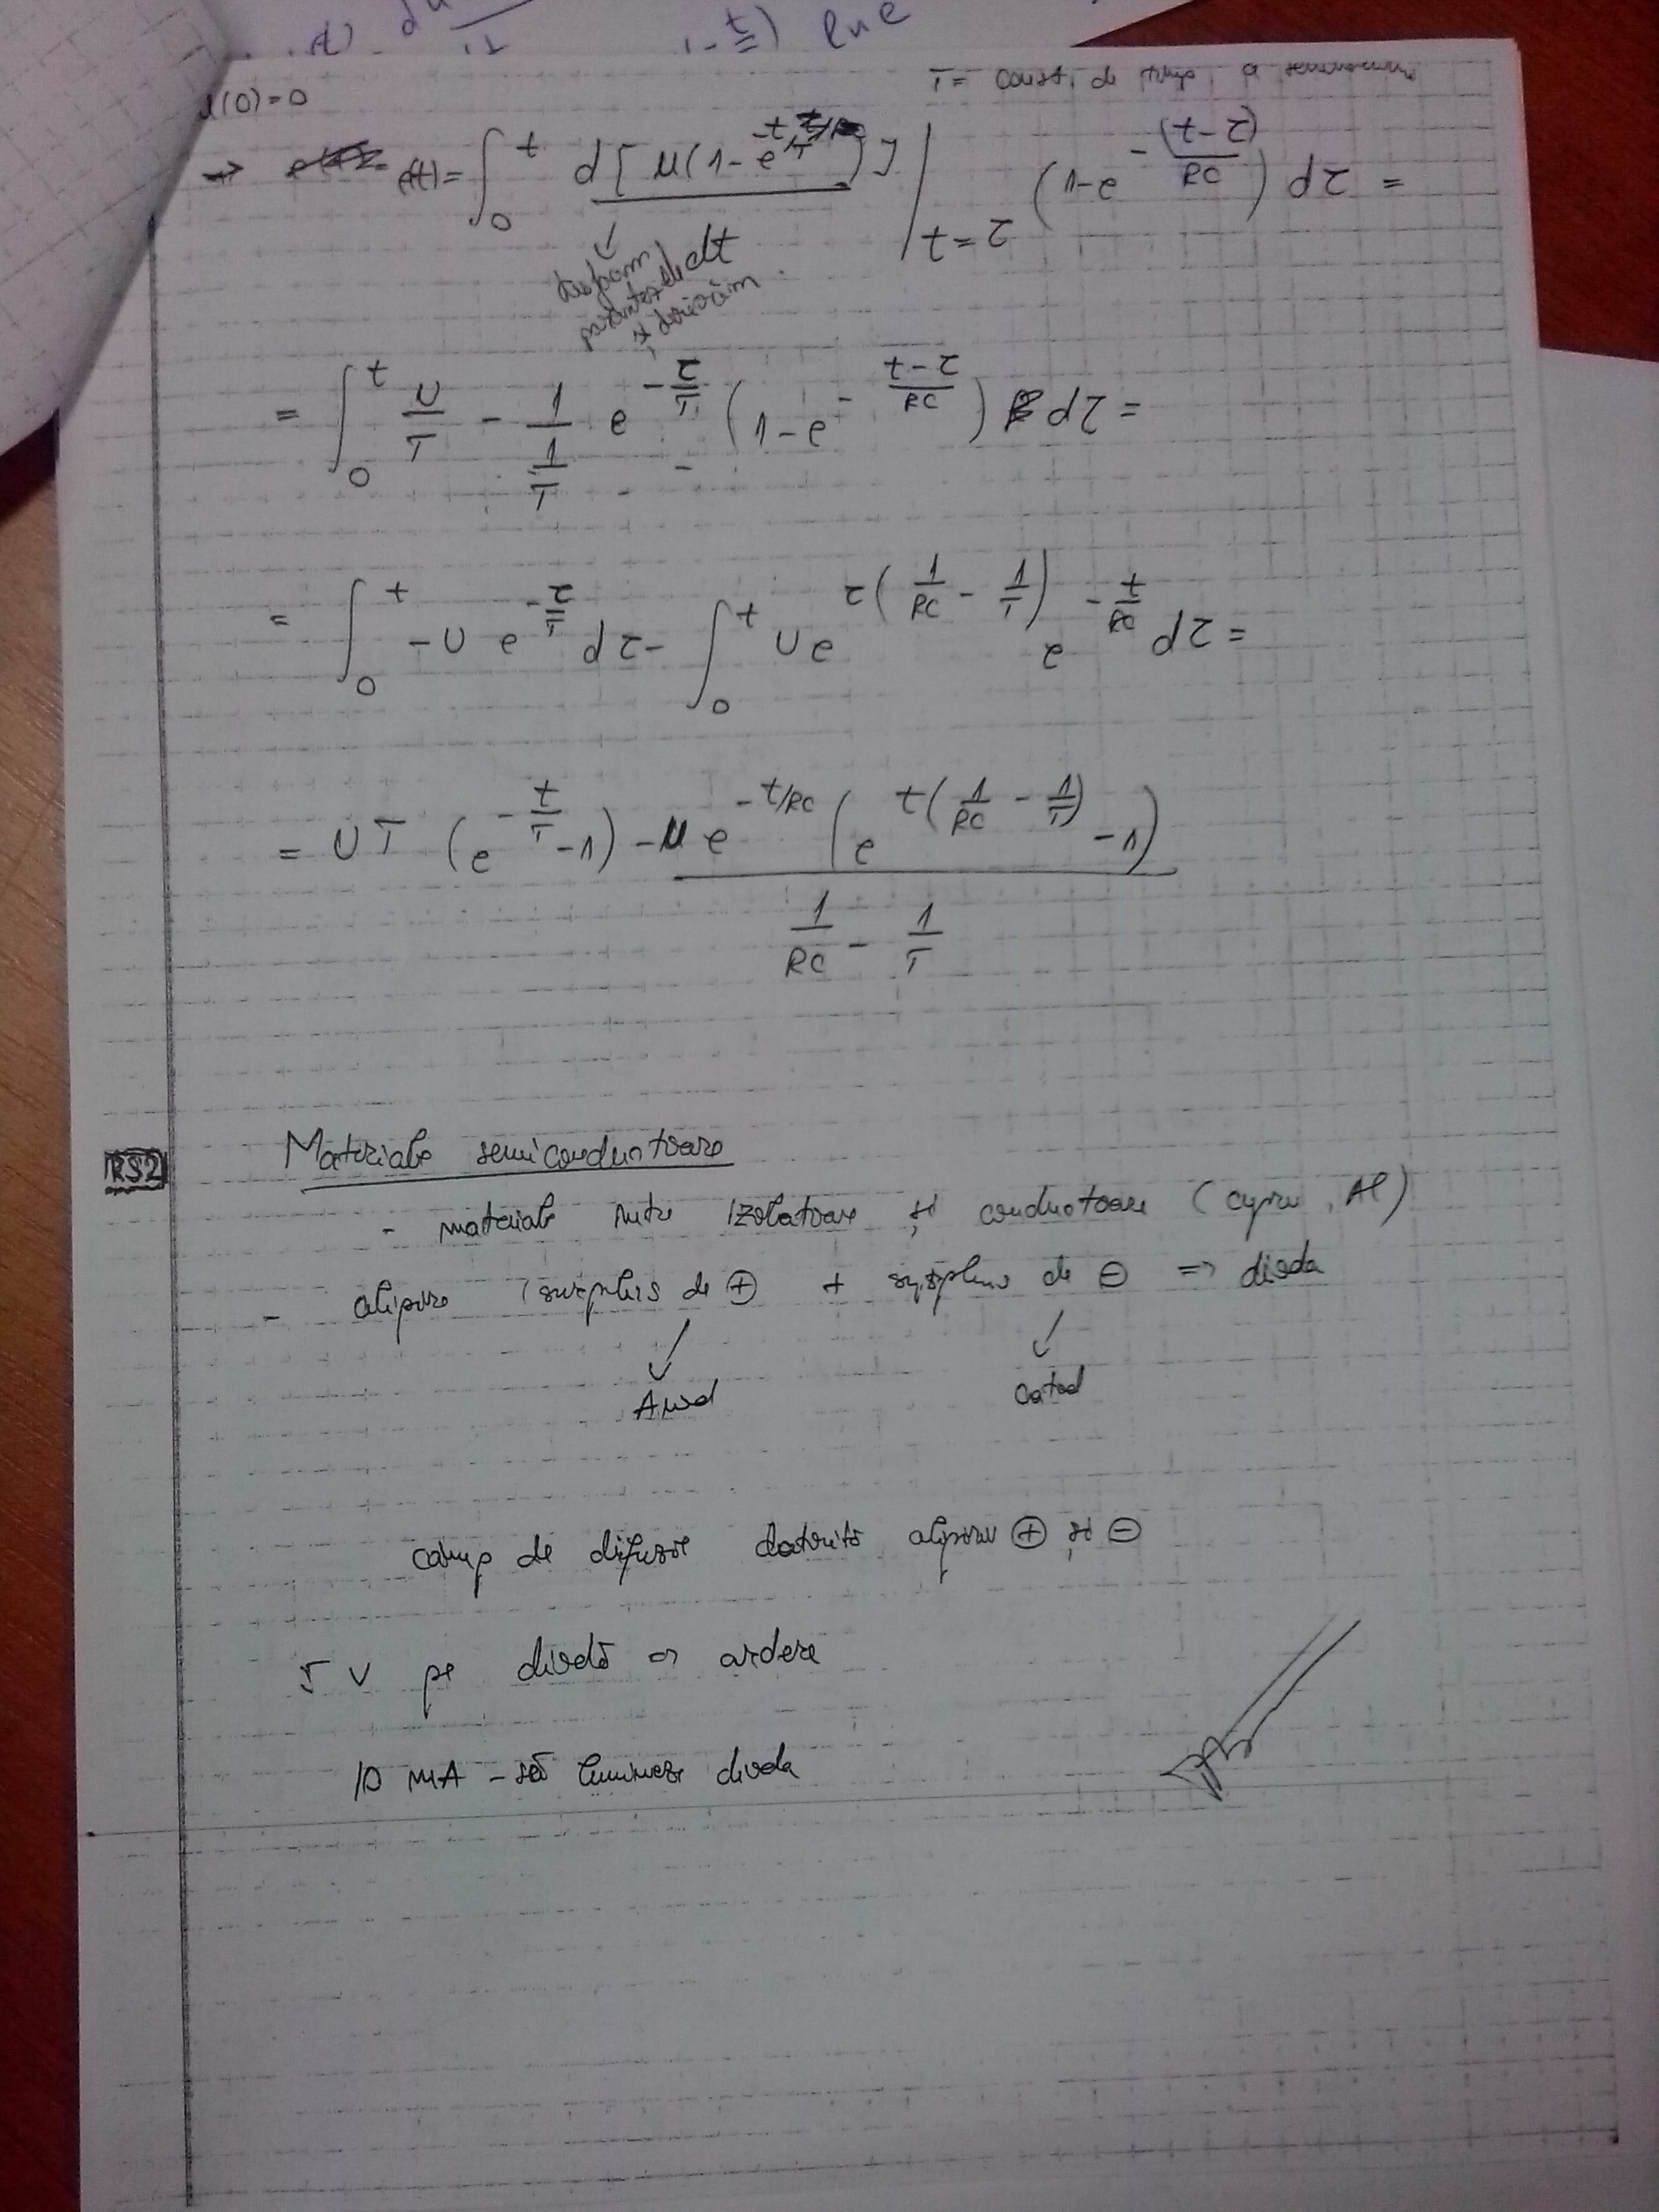 (0)=0
T = const. de timp a
→ e(t) = ∫₀ᵗ d[u(1-e^{-t/T})] / dt |_{t=τ} (1-e^{-(t-τ)/RC}) dτ =
↓
desfacem
paranteza
și derivăm
= ∫₀ᵗ U/T - 1/(1/T) e^{-τ/T} (1-e^{-(t-τ)/RC}) dτ =
= ∫₀ᵗ -U e^{-τ/T} dτ - ∫₀ᵗ U e^{τ(1/RC - 1/T)} e^{-t/RC} dτ =
= UT (e^{-t/T} -1) - u e^{-t/RC} (e^{t(1/RC - 1/T)} -1) / (1/RC - 1/T)
RS2
Materiale semiconductoare
- materiale între izolatoare și conductoare (cupru, Al)
- alipire (surplus de ⊕ + surplus de ⊖ => dioda
↓ ↓
Anod Catod
camp de difuzie datorită alipirii ⊕ și ⊖
5 V pe diodă => ardere
10 mA - să lumineze dioda